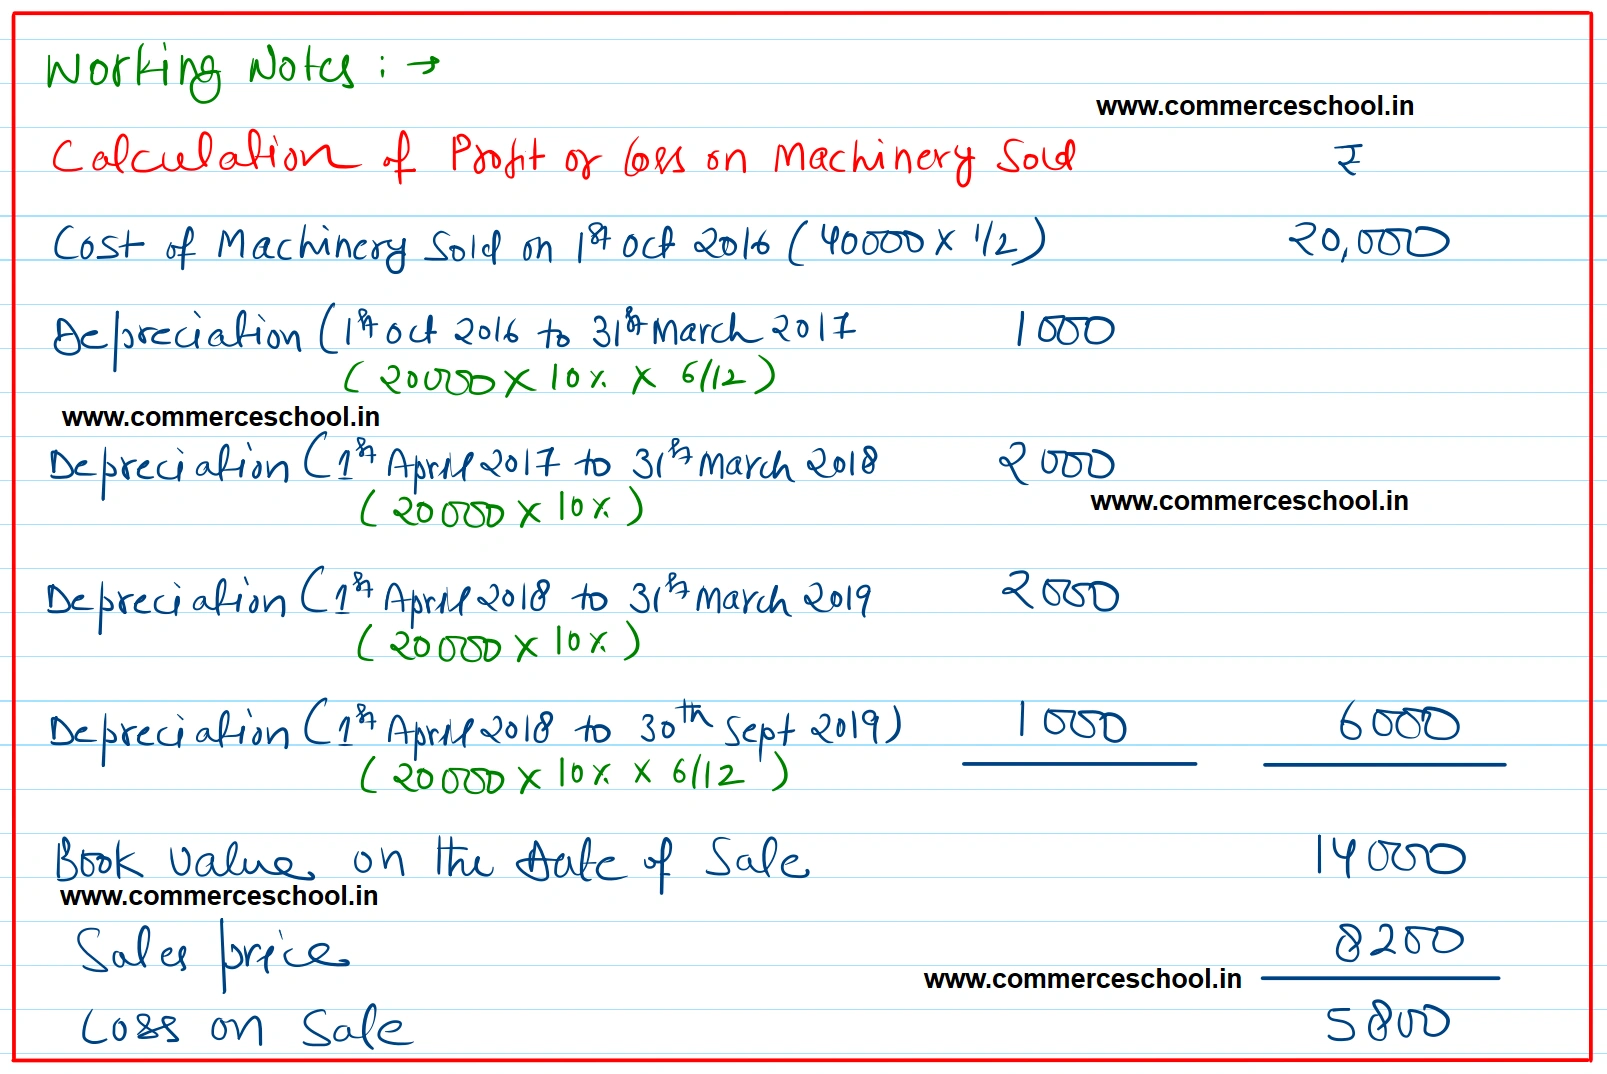 Working Notes : →
www.commerceschool.in
Calculation of Profit or Loss on Machinery Sold ₹
Cost of Machinery Sold on 1st Oct 2016 (40000 x 1/2) 20,000
Depreciation (1st Oct 2016 to 31st March 2017 1000
(20000 x 10% x 6/12)
www.commerceschool.in
Depreciation (1st April 2017 to 31st March 2018 2000
www.commerceschool.in
(20000 x 10%)
Depreciation (1st April 2018 to 31st March 2019 2000
(20000 x 10%)
Depreciation (1st April 2018 to 30th Sept 2019) 1000 6000
(20000 x 10% x 6/12)
Book value on the date of Sale 14000
www.commerceschool.in
Sales price 8200
www.commerceschool.in
Loss on Sale 5800